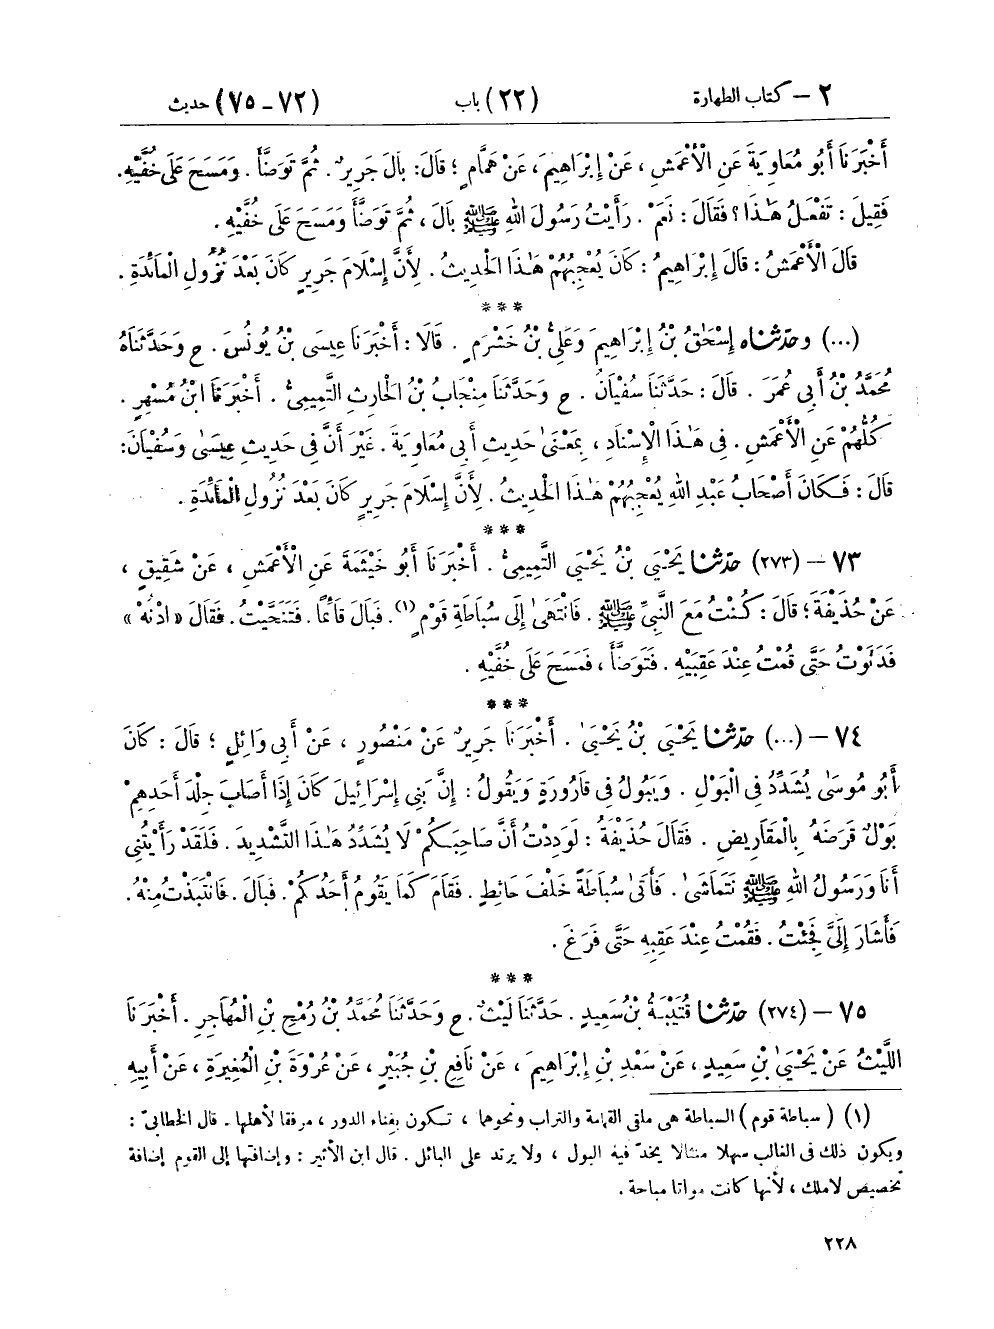 ٢ – كتاب الطهارة (٢٢) باب (٧٢ – ٧٥) حديث
أَخْبَرَنَا أَبُو مُعَاوِيَةَ عَنِ الْأَعْمَشِ ، عَنْ إِبْرَاهِيمَ ، عَنْ هَمَّامٍ ؛ قَالَ : بَالَ جَرِيرٌ . ثُمَّ تَوَضَّأَ . وَمَسَحَ عَلَى خُفَّيْهِ.
فَقِيلَ : تَفْعَلُ هٰذَا ؟ فَقَالَ : نَعَمْ . رَأَيْتُ رَسُولَ اللهِ ﷺ بَالَ ، ثُمَّ تَوَضَّأَ وَمَسَحَ عَلَى خُفَّيْهِ .
قَالَ الْأَعْمَشُ : قَالَ إِبْرَاهِيمُ : كَانَ يُعْجِبُهُمْ هٰذَا الْحَدِيثُ . لِأَنَّ إِسْلَامَ جَرِيرٍ كَانَ بَعْدَ نُزُولِ الْمَائِدَةِ .
***
(...) وحدّثناه إِسْحَٰقُ بْنُ إِبْرَاهِيمَ وَعَلِيُّ بْنُ خَشْرَمٍ . قَالَا : أَخْبَرَنَا عِيسَى بْنُ يُونُسَ . ح وَحَدَّثَنَاهُ
مُحَمَّدُ بْنُ أَبِي عُمَرَ . قَالَ : حَدَّثَنَا سُفْيَانُ . ح وَحَدَّثَنَا مِنْجَابُ بْنُ الْحَارِثِ التَّمِيمِيُّ . أَخْبَرَنَا ابْنُ مُسْهِرٍ .
كُلُّهُمْ عَنِ الْأَعْمَشِ . فِي هٰذَا الْإِسْنَادِ ، بِمَعْنَىٰ حَدِيثِ أَبِي مُعَاوِيَةَ . غَيْرَ أَنَّ فِي حَدِيثِ عِيسَىٰ وَسُفْيَانَ :
قَالَ : فَكَانَ أَصْحَابُ عَبْدِ اللهِ يُعْجِبُهُمْ هٰذَا الْحَدِيثُ . لِأَنَّ إِسْلَامَ جَرِيرٍ كَانَ بَعْدَ نُزُولِ الْمَائِدَةِ .
***
٧٣ – (٢٧٣) حدّثنا يَحْيَى بْنُ يَحْيَى التَّمِيمِيُّ . أَخْبَرَنَا أَبُو خَيْثَمَةَ عَنِ الْأَعْمَشِ ، عَنْ شَقِيقٍ ،
عَنْ حُذَيْفَةَ ؛ قَالَ : كُنْتُ مَعَ النَّبِيِّ ﷺ . فَانْتَهَىٰ إِلَى سُبَاطَةِ قَوْمٍ (١) . فَبَالَ قَائِمًا . فَتَنَحَّيْتُ . فَقَالَ « ادْنُهْ »
فَدَنَوْتُ حَتَّى قُمْتُ عِنْدَ عَقِبَيْهِ . فَتَوَضَّأَ ، فَمَسَحَ عَلَى خُفَّيْهِ .
***
٧٤ – (...) حدّثنا يَحْيَى بْنُ يَحْيَىٰ . أَخْبَرَنَا جَرِيرٌ عَنْ مَنْصُورٍ ، عَنْ أَبِي وَائِلٍ ؛ قَالَ : كَانَ
أَبُو مُوسَىٰ يُشَدِّدُ فِي الْبَوْلِ . وَيَبُولُ فِي قَارُورَةٍ وَيَقُولُ : إِنَّ بَنِي إِسْرَائِيلَ كَانَ إِذَا أَصَابَ جِلْدَ أَحَدِهِمْ
بَوْلٌ قَرَضَهُ بِالْمَقَارِيضِ . فَقَالَ حُذَيْفَةُ : لَوَدِدْتُ أَنَّ صَاحِبَكُمْ لَا يُشَدِّدُ هٰذَا التَّشْدِيدَ . فَلَقَدْ رَأَيْتُنِي
أَنَا وَرَسُولُ اللهِ ﷺ نَتَمَاشَىٰ . فَأَتَى سُبَاطَةً خَلْفَ حَائِطٍ . فَقَامَ كَمَا يَقُومُ أَحَدُكُمْ . فَبَالَ . فَانْتَبَذْتُ مِنْهُ .
فَأَشَارَ إِلَيَّ فَجِئْتُ . فَقُمْتُ عِنْدَ عَقِبِهِ حَتَّى فَرَغَ .
***
٧٥ – (٢٧٤) حدّثنا قُتَيْبَةُ بْنُ سَعِيدٍ . حَدَّثَنَا لَيْثٌ . ح وَحَدَّثَنَا مُحَمَّدُ بْنُ رُمْحِ بْنِ الْمُهَاجِرِ . أَخْبَرَنَا
اللَّيْثُ عَنْ يَحْيَىٰ بْنِ سَعِيدٍ ، عَنْ سَعْدِ بْنِ إِبْرَاهِيمَ ، عَنْ نَافِعِ بْنِ جُبَيْرٍ ، عَنْ عُرْوَةَ بْنِ الْمُغِيرَةِ ، عَنْ أَبِيهِ
(١) ( سباطة قوم ) السباطة هى ملقى القمامة والتراب ونحوهما ، تكون بفناء الدور ، مرفقا لأهلها . قال الخطابىّ :
ويكون ذلك فى الغالب سهلا منثالا يخدّ فيه البول ، ولا يرتد على البائل . قال ابن الأثير : وإضافتها إلى القوم إضافة
تخصيص لا ملك ، لأنها كانت مواتا مباحة .
٢٢٨